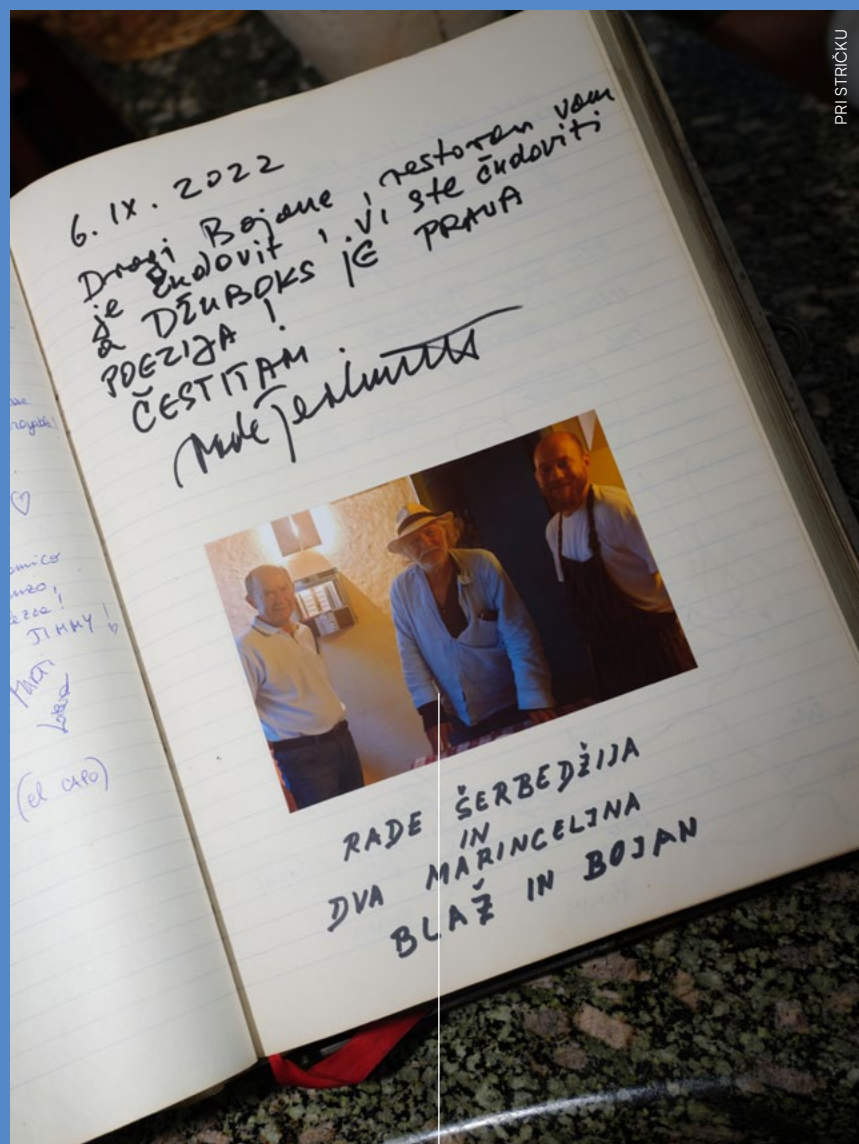 PRI STRIČKU
6. IX. 2022
Dragi Bojane, restoran vam
je čudovit, vi ste čudoviti
a DŽUBOKS JE PRAVA
POEZIJA!
ČESTITAM.
Rade Šerbedžija
RADE ŠERBEDŽIJA
IN
DVA MARINCELJNA
BLAŽ IN BOJAN
JIMMY!
(el CAPO)